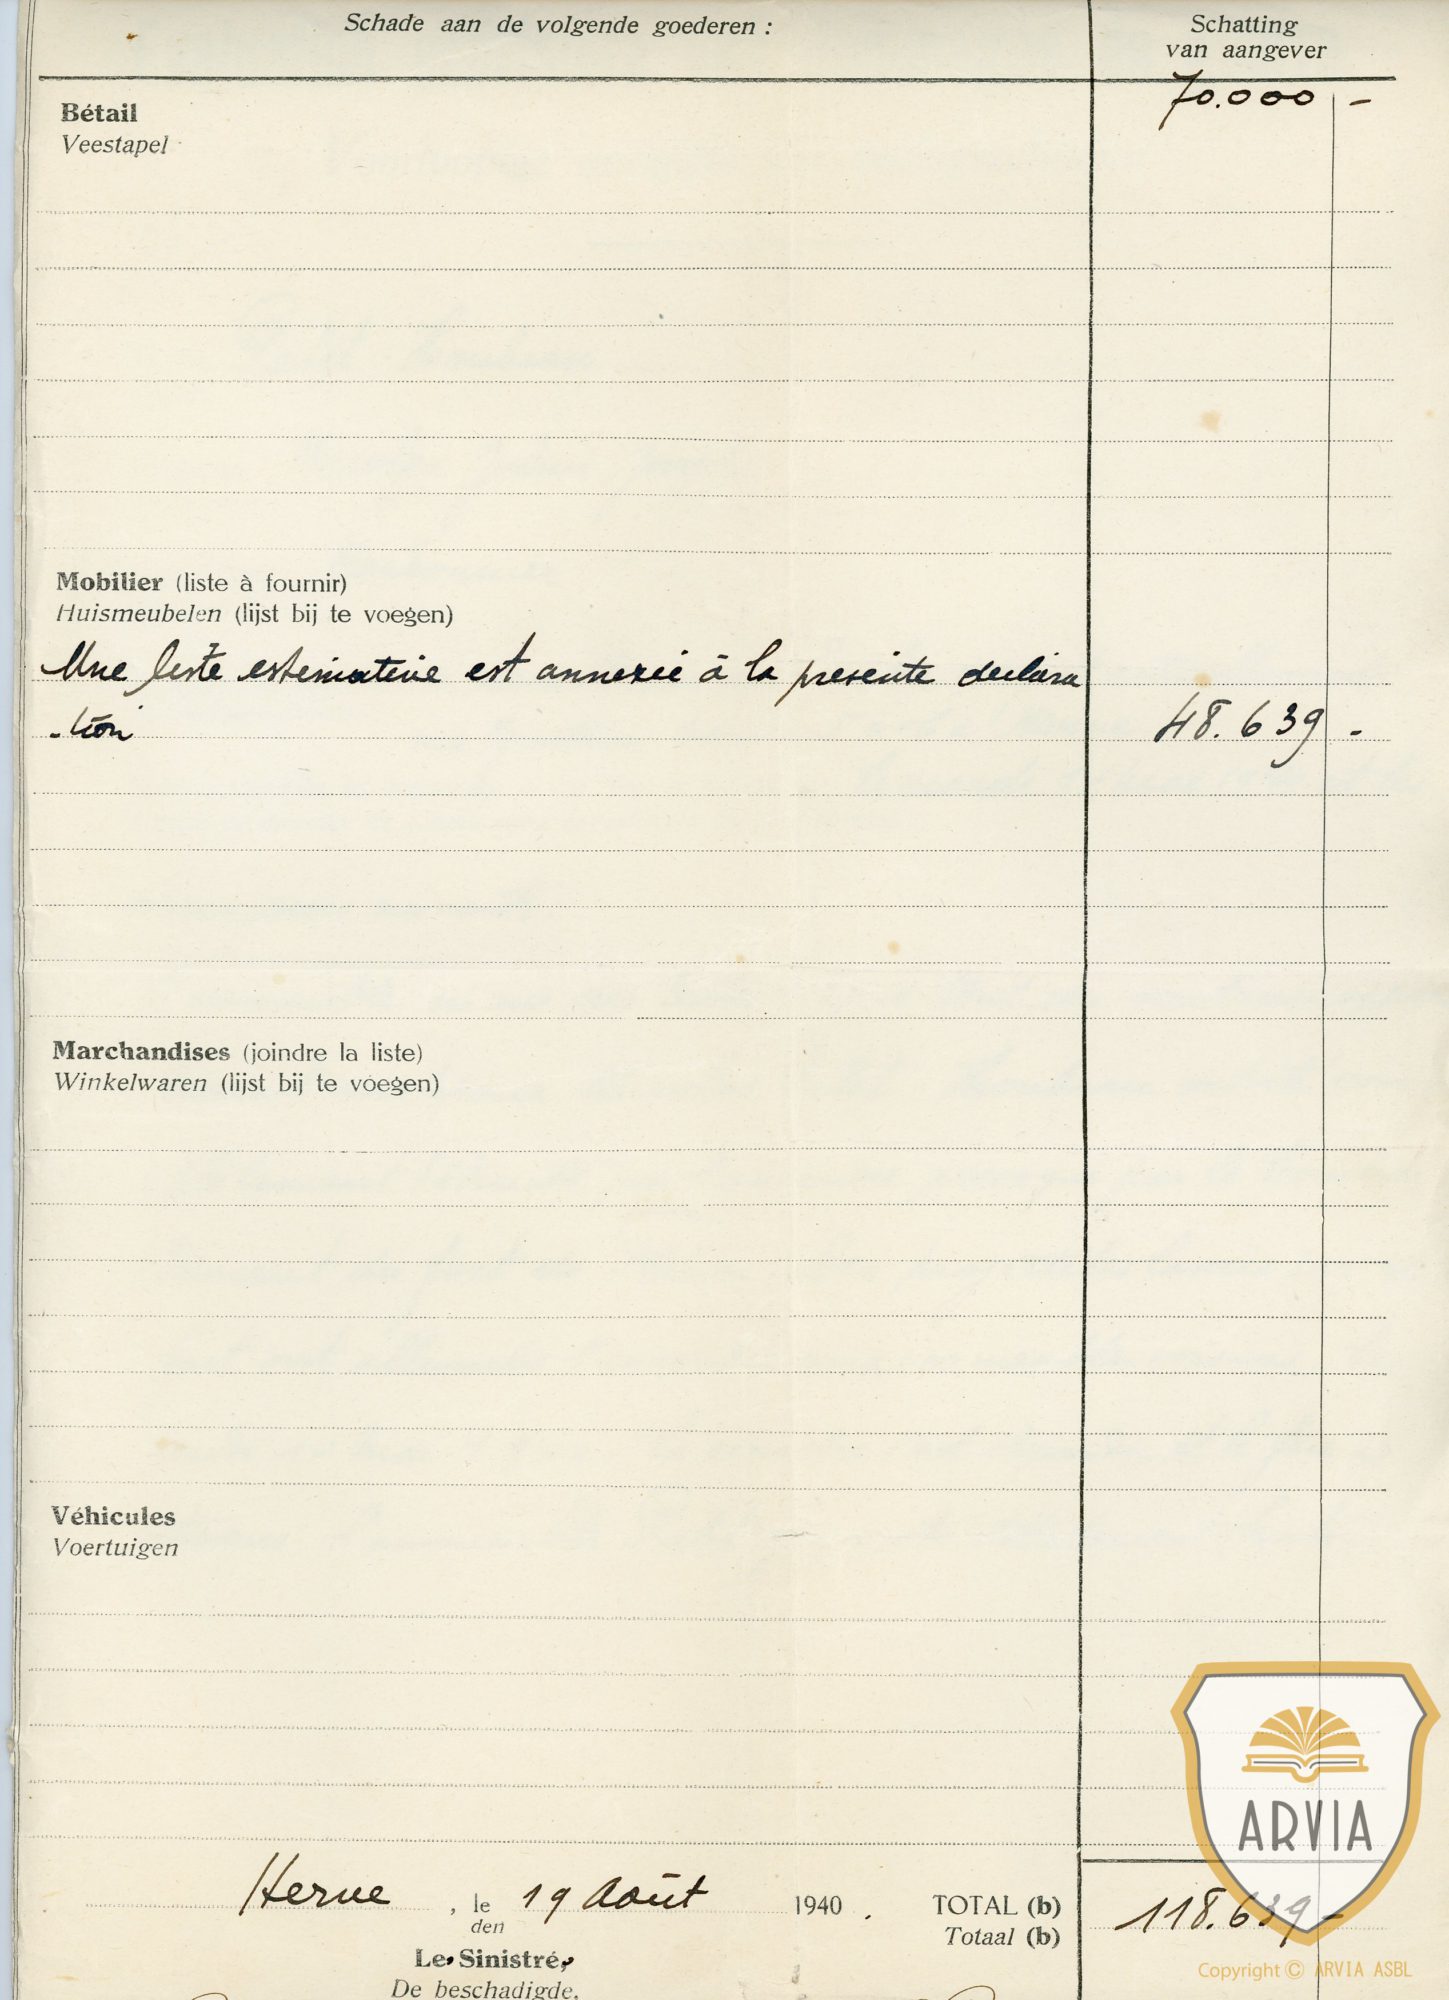 Schade aan de volgende goederen :
Schatting
van aangever
70.000 -
Bétail
Veestapel
Mobilier (liste à fournir)
Huismeubelen (lijst bij te voegen)
Une liste estimative est annexée à la présente déclara
-tion
48.639 -
Marchandises (joindre la liste)
Winkelwaren (lijst bij te voegen)
Véhicules
Voertuigen
Herve , le 19 Août 1940 . TOTAL (b)
den Totaal (b)
118.639 -
Le Sinistré,
De beschadigde,
ARVIA
Copyright © ARVIA ASBL